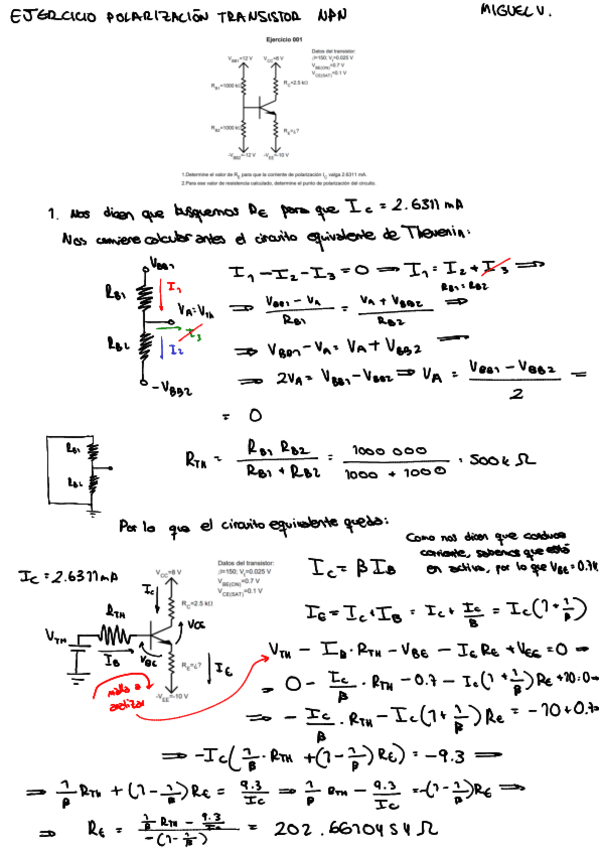 EJERCICIO POLARIZACIÓN TRANSISTOR NPN
MIGUEL V.
Ejercicio 001
V_BB1=12 V
V_CC=8 V
Datos del transistor:
β=150; V_t=0.025 V
V_BE(ON)=0.7 V
V_CE(SAT)=0.1 V
R_B1=1000 kΩ
R_C=2.5 kΩ
R_B2=1000 kΩ
R_E=¿?
-V_BB2=-12 V
-V_EE=-10 V
1.Determine el valor de R_E para que la corriente de polarización I_C valga 2.6311 mA.
2.Para ese valor de resistencia calculado, determine el punto de polarización del circuito.
1. Nos dicen que busquemos R_E para que I_C = 2.6311 mA
Nos conviene calcular antes el circuito equivalente de Thevenin:
V_BB1
R_B1
I_1
V_A=V_TH
I_3
R_B2
I_2
-V_BB2
I_1 - I_2 - I_3 = 0 ⇒ I_1 = I_2 + I_3 ⇒
R_B1 = R_B2
⇒ (V_BB1 - V_A)/R_B1 = (V_A + V_BB2)/R_B2 ⇒
⇒ V_BB1 - V_A = V_A + V_BB2 ⇒
⇒ 2V_A = V_BB1 - V_BB2 ⇒ V_A = (V_BB1 - V_BB2)/2 =
= 0
R_B1
R_B2
R_TH = (R_B1 R_B2)/(R_B1 + R_B2) = 1000 000/(1000 + 1000) = 500k Ω
Por lo que el circuito equivalente queda:
Como nos dicen que conduce
corriente, sabemos que está
en activa, por lo que V_BE = 0.7V
I_C = 2.6311 mA
V_CC=8 V
Datos del transistor:
β=150; V_t=0.025 V
V_BE(ON)=0.7 V
V_CE(SAT)=0.1 V
I_C
R_C=2.5 kΩ
R_TH
V_CE
V_TH
I_B
V_BE
R_E=¿?
I_E
-V_EE=-10 V
malla a
analizar
I_C = β I_B
I_E = I_C + I_B = I_C + I_C/β = I_C(1 + 1/β)
V_TH - I_B · R_TH - V_BE - I_E R_E + V_EE = 0 ⇒
⇒ 0 - I_C/β · R_TH - 0.7 - I_C(1 + 1/β) R_E + 10 = 0 ⇒
⇒ - I_C/β · R_TH - I_C(1 + 1/β) R_E = -10 + 0.7
⇒ -I_C(1/β · R_TH + (1 - 1/β) R_E) = -9.3 ⇒
⇒ 1/β R_TH + (1 - 1/β) R_E = 9.3/I_C ⇒ 1/β R_TH - 9.3/I_C = -(1 - 1/β) R_E ⇒
⇒ R_E = (1/β R_TH - 9.3/I_C)/(-(1 - 1/β)) = 202.6610454 Ω